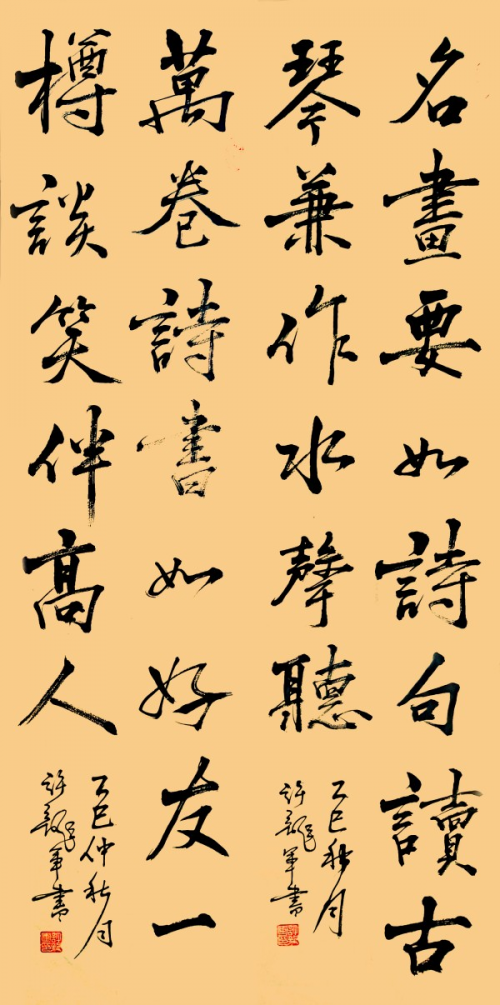 名畫要如詩句讀古
琴兼作水聲聽
乙巳秋月
許龍軍書
萬卷詩書如好友一
樽談笑伴高人
乙巳仲秋月
許龍軍書